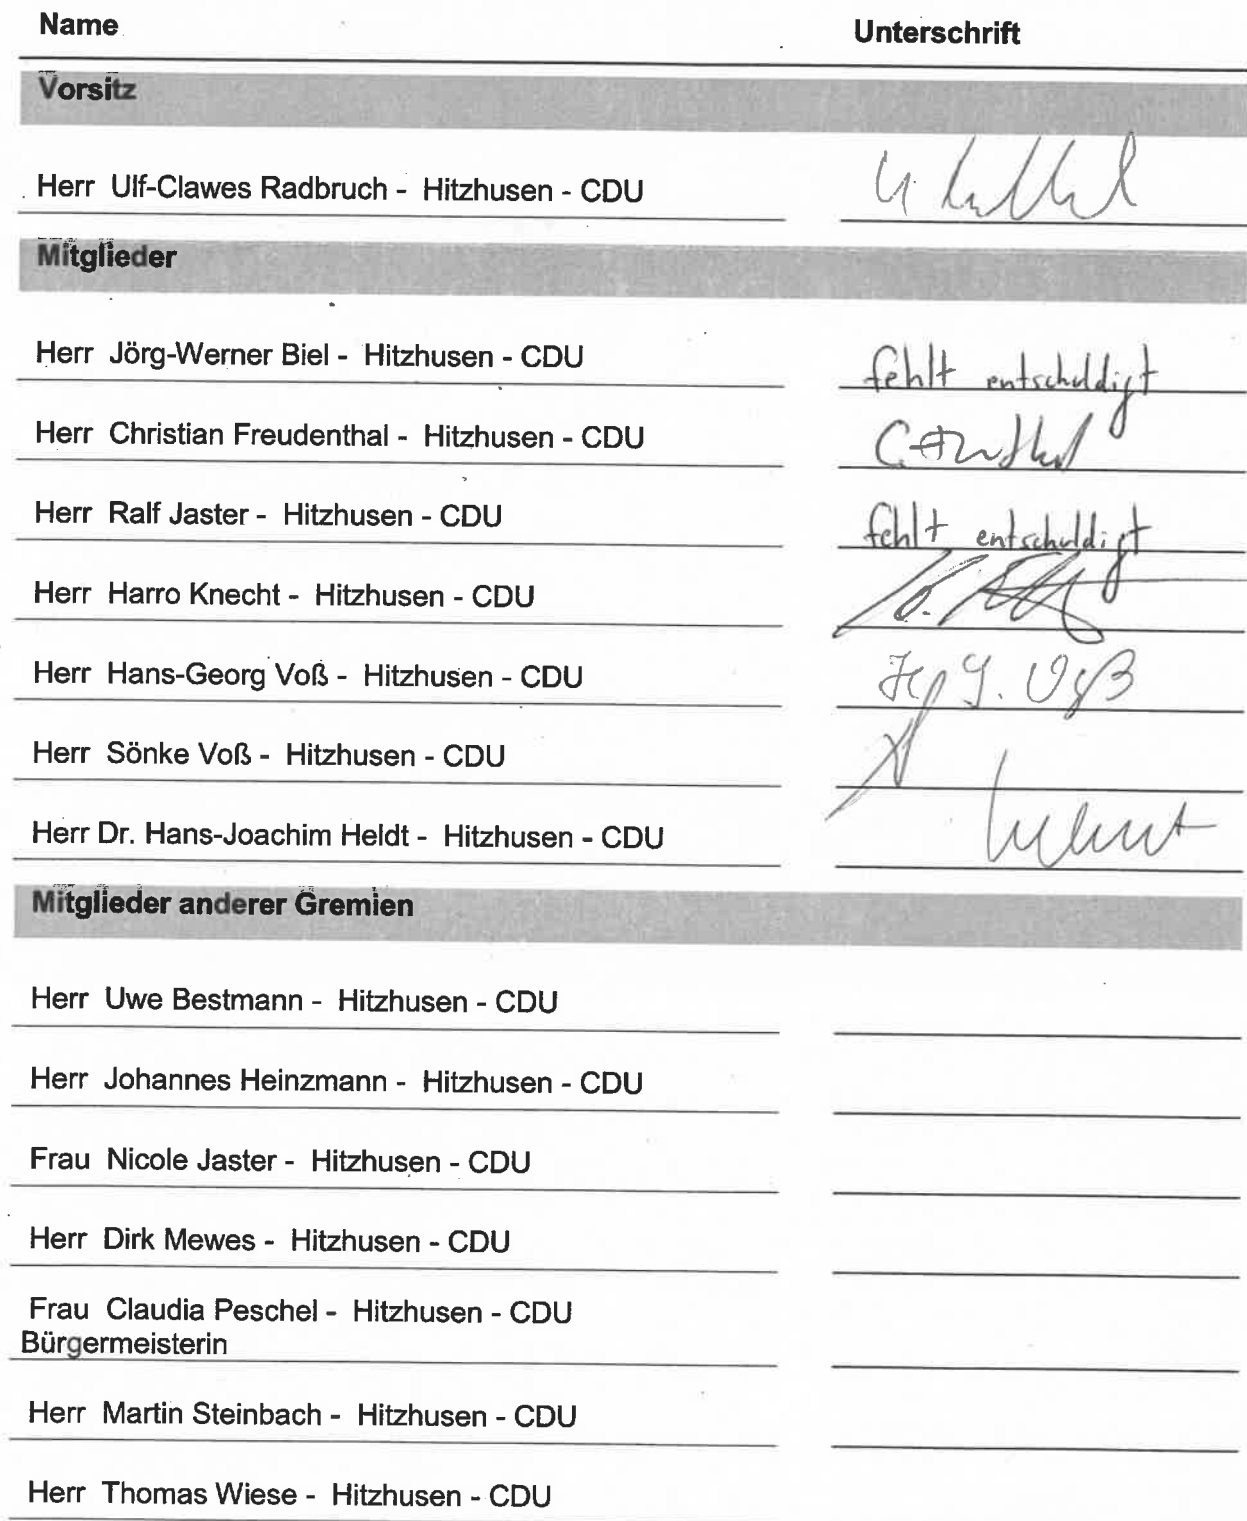 Name Unterschrift
Vorsitz
Herr Ulf-Clawes Radbruch - Hitzhusen - CDU
Mitglieder
Herr Jörg-Werner Biel - Hitzhusen - CDU fehlt entschuldigt
Herr Christian Freudenthal - Hitzhusen - CDU
Herr Ralf Jaster - Hitzhusen - CDU fehlt entschuldigt
Herr Harro Knecht - Hitzhusen - CDU
Herr Hans-Georg Voß - Hitzhusen - CDU
Herr Sönke Voß - Hitzhusen - CDU
Herr Dr. Hans-Joachim Heldt - Hitzhusen - CDU
Mitglieder anderer Gremien
Herr Uwe Bestmann - Hitzhusen - CDU
Herr Johannes Heinzmann - Hitzhusen - CDU
Frau Nicole Jaster - Hitzhusen - CDU
Herr Dirk Mewes - Hitzhusen - CDU
Frau Claudia Peschel - Hitzhusen - CDU
Bürgermeisterin
Herr Martin Steinbach - Hitzhusen - CDU
Herr Thomas Wiese - Hitzhusen - CDU